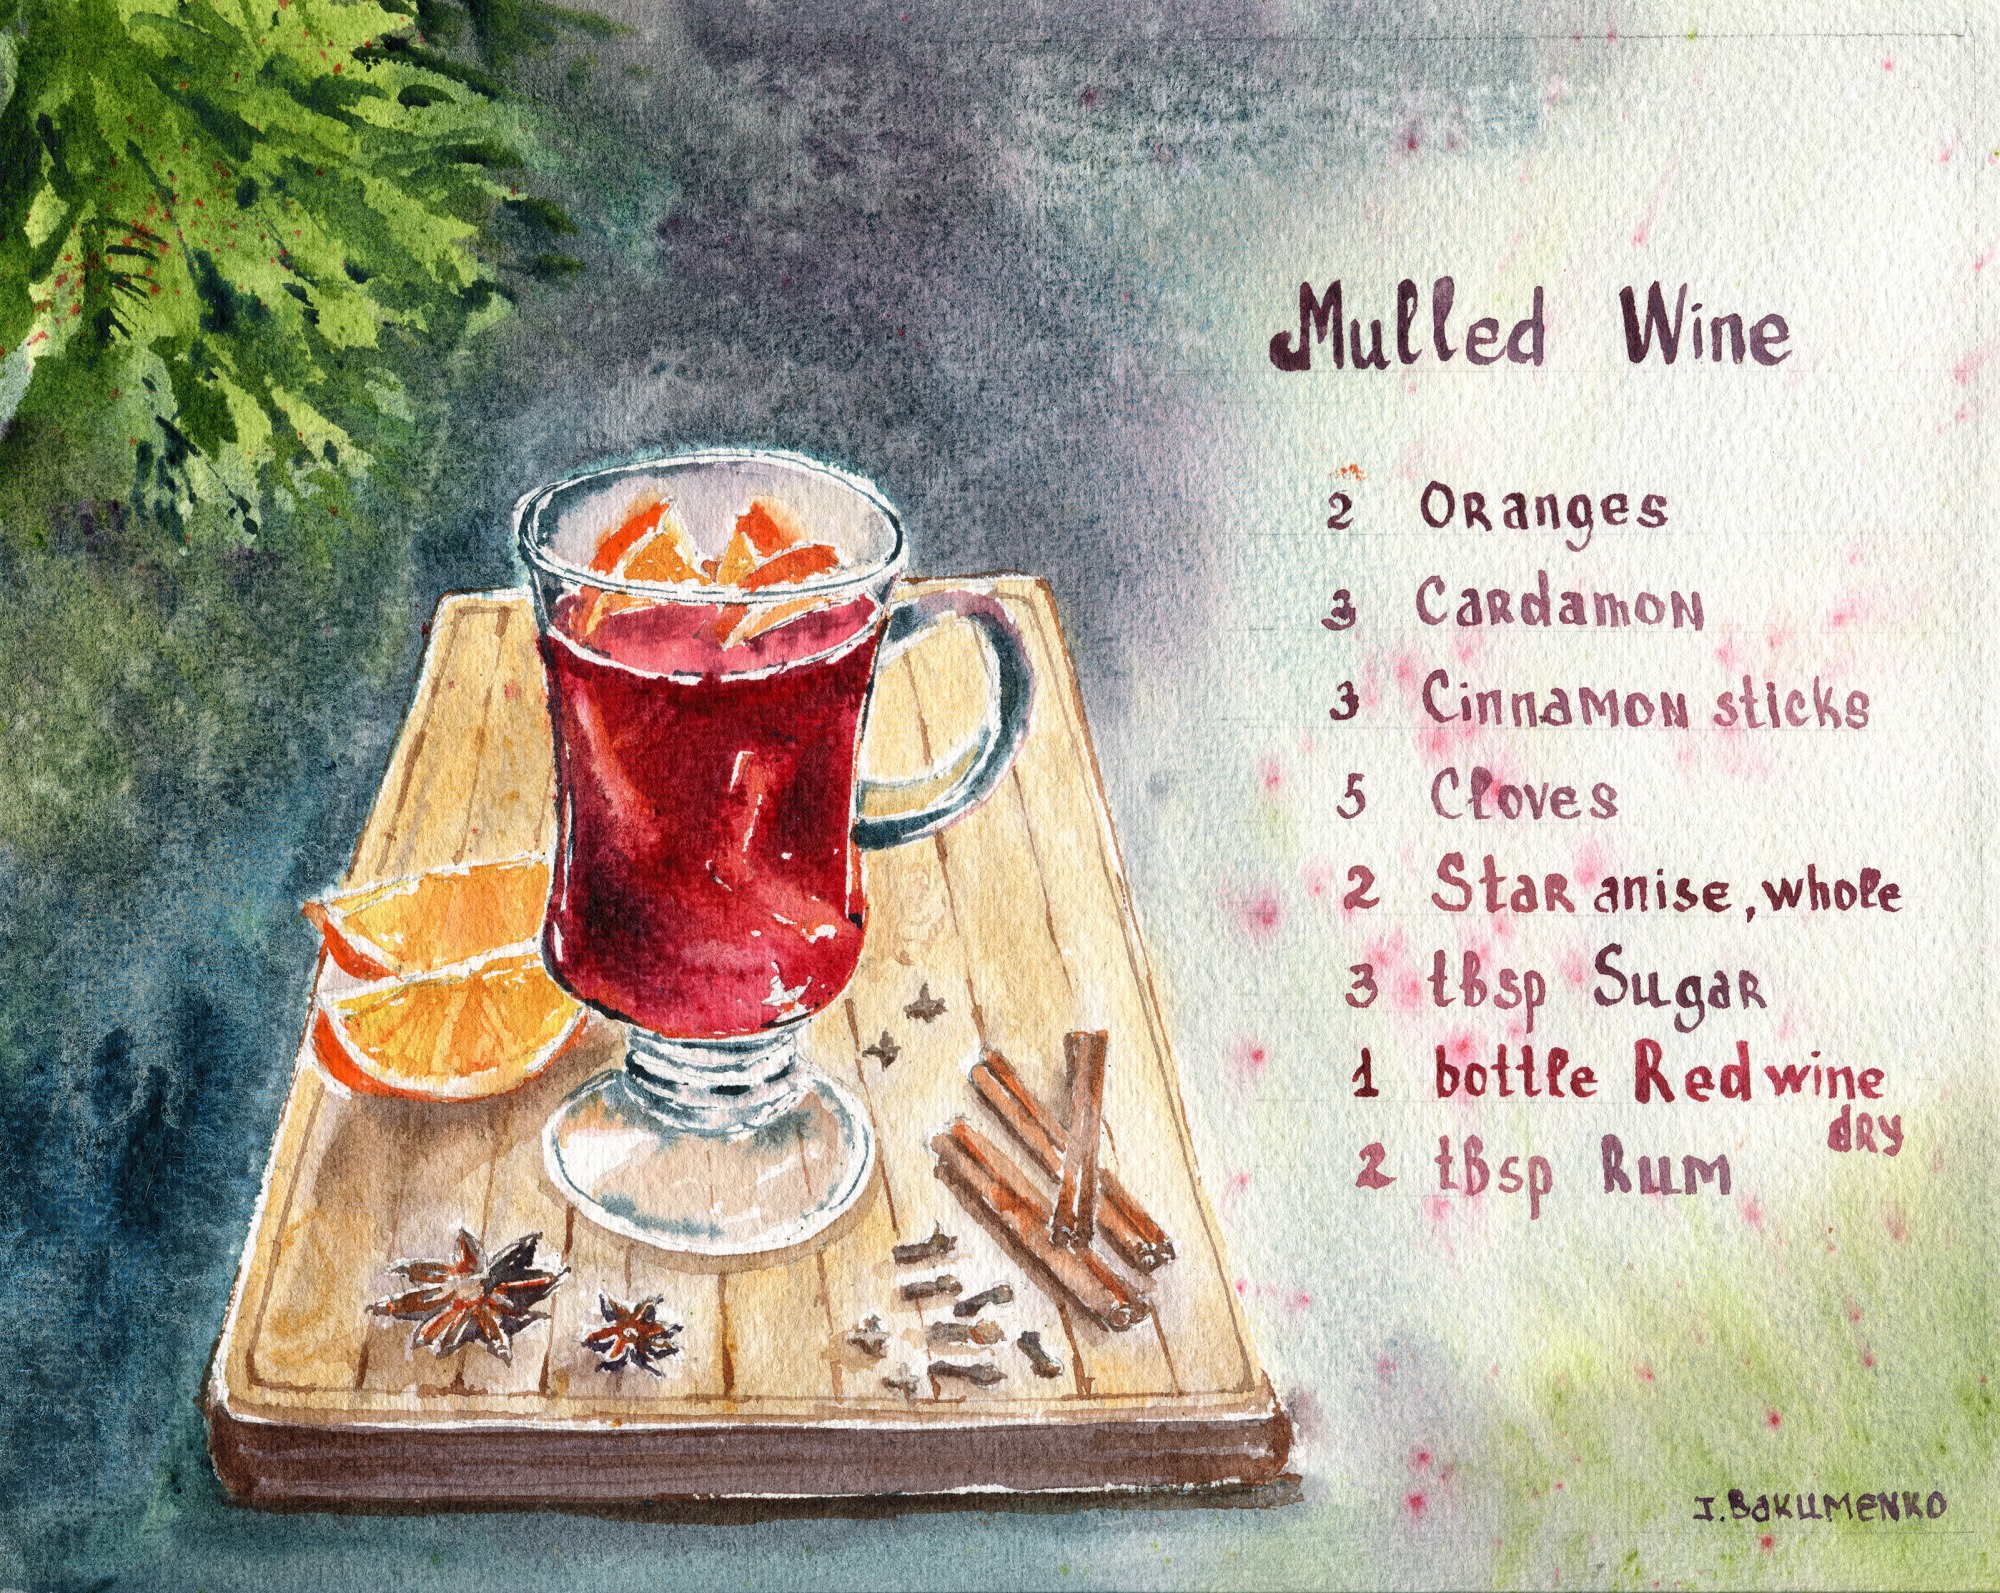 Mulled Wine
2 Oranges
3 Cardamon
3 Cinnamon sticks
5 Cloves
2 Star anise, whole
3 tbsp Sugar
1 bottle Red wine
dry
2 tbsp Rum
I. Bakumenko